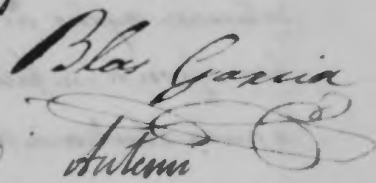 Blas Garcia
Antemi